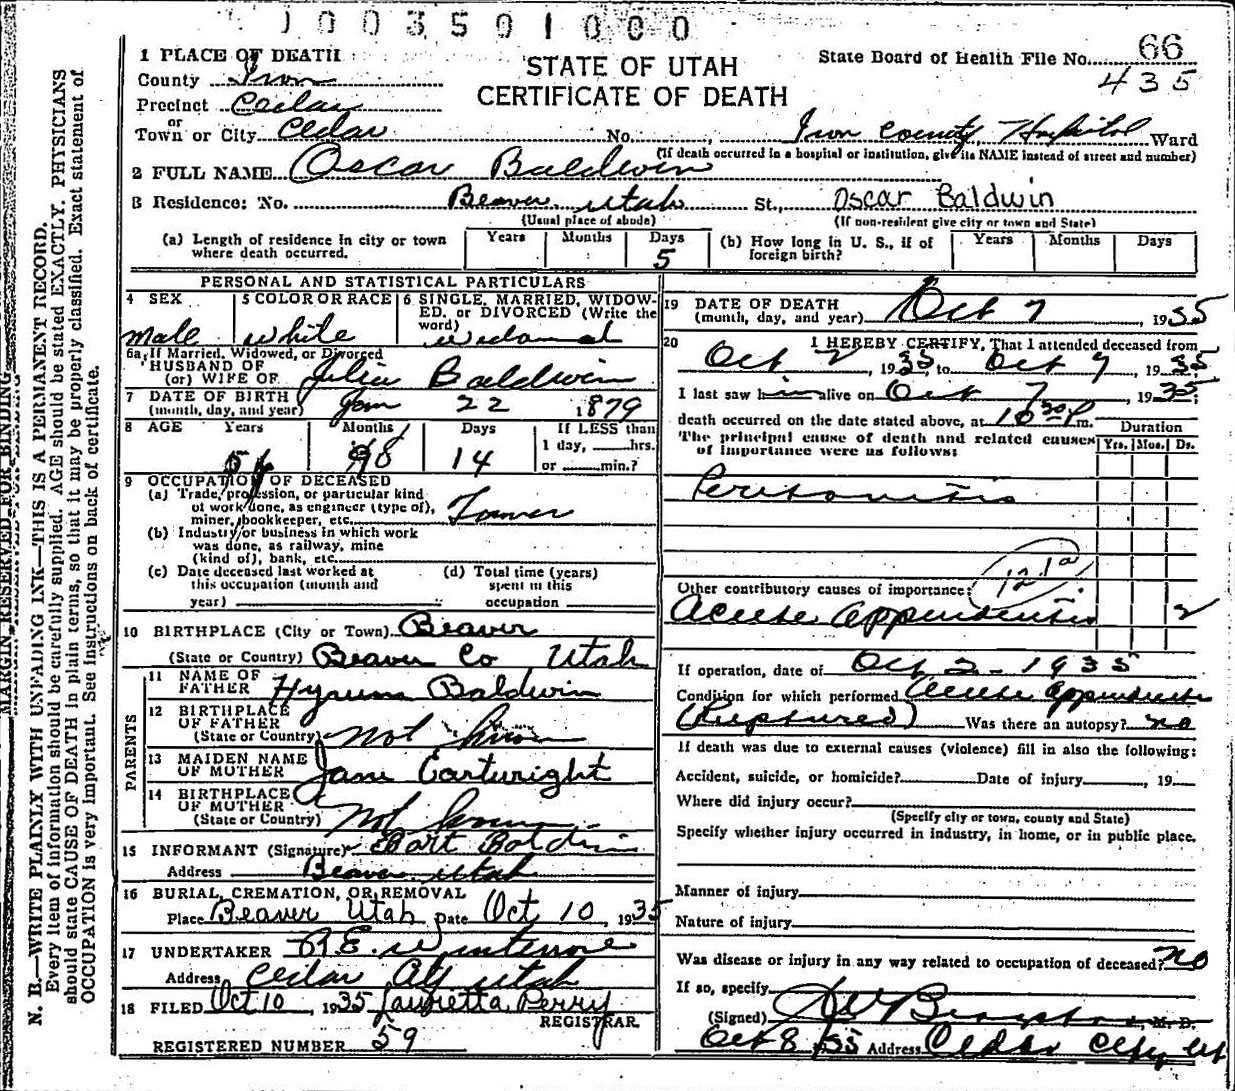 1003501000
1 PLACE OF DEATH
County Iron
Precinct Cedar
or
Town or City Cedar No. , Iron County Hospital Ward
STATE OF UTAH
CERTIFICATE OF DEATH
State Board of Health File No. 66
435
(If death occurred in a hospital or institution, give its NAME instead of street and number)
2 FULL NAME Oscar Baldwin
3 Residence: No. Beaver Utah St., Oscar Baldwin
(Usual place of abode) (If non-resident give city or town and State)
(a) Length of residence in city or town where death occurred. Years Months Days 5
(b) How long in U. S., if of foreign birth? Years Months Days
PERSONAL AND STATISTICAL PARTICULARS
4 SEX male
5 COLOR OR RACE white
6 SINGLE, MARRIED, WIDOWED, or DIVORCED (Write the word) widowed
6a If Married, Widowed, or Divorced
HUSBAND OF
(or) WIFE OF Julia Baldwin
7 DATE OF BIRTH
(month, day, and year) Jan 22 1879
8 AGE Years 56 Months 8 Days 14 If LESS than
1 day, hrs.
or min.?
9 OCCUPATION OF DECEASED
(a) Trade, profession, or particular kind
of work done, as engineer (type of),
miner, bookkeeper, etc.
(b) Industry or business in which work
was done, as railway, mine
(kind of), bank, etc.
(c) Date deceased last worked at
this occupation (month and
year)
(d) Total time (years)
spent in this
occupation
10 BIRTHPLACE (City or Town) Beaver
(State or Country) Beaver Co Utah
PARENTS
11 NAME OF
FATHER Hyrum Baldwin
12 BIRTHPLACE
OF FATHER
(State or Country) not know
13 MAIDEN NAME
OF MOTHER Jane Cartwright
14 BIRTHPLACE
OF MOTHER
(State or Country) not know
15 INFORMANT (Signature) Bart Baldwin
Address Beaver Utah
16 BURIAL, CREMATION, OR REMOVAL
Place Beaver Utah Date Oct 10, 1935
17 UNDERTAKER
Address Cedar City Utah
18 FILED Oct 10, 1935 Laurietta Perry
REGISTRAR.
REGISTERED NUMBER 59
19 DATE OF DEATH
(month, day, and year) Oct 7, 1935
20 I HEREBY CERTIFY, That I attended deceased from
Oct 2, 1935, to Oct 7, 1935
I last saw him alive on Oct 7, 1935,
death occurred on the date stated above, at 10 30 P m.
The principal cause of death and related causes
of importance were as follows:
Duration
Yrs. Mos. Ds.
Peritonitis
121a
Other contributory causes of importance:
Acute appendicitis 2
If operation, date of Oct 2 - 1935
Condition for which performed Acute appendicitis
(Ruptured) Was there an autopsy? no
If death was due to external causes (violence) fill in also the following:
Accident, suicide, or homicide? Date of injury , 19
Where did injury occur?
(Specify city or town, county and State)
Specify whether injury occurred in industry, in home, or in public place.
Manner of injury
Nature of injury
Was disease or injury in any way related to occupation of deceased? no
If so, specify
(Signed) , M. D.
Oct 8/35 Address Cedar City Ut
MARGIN RESERVED FOR BINDING
N. B.—WRITE PLAINLY WITH UNFADING INK—THIS IS A PERMANENT RECORD.
Every item of information should be carefully supplied. AGE should be stated EXACTLY. PHYSICIANS
should state CAUSE OF DEATH in plain terms, so that it may be properly classified. Exact statement of
OCCUPATION is very important. See instructions on back of certificate.